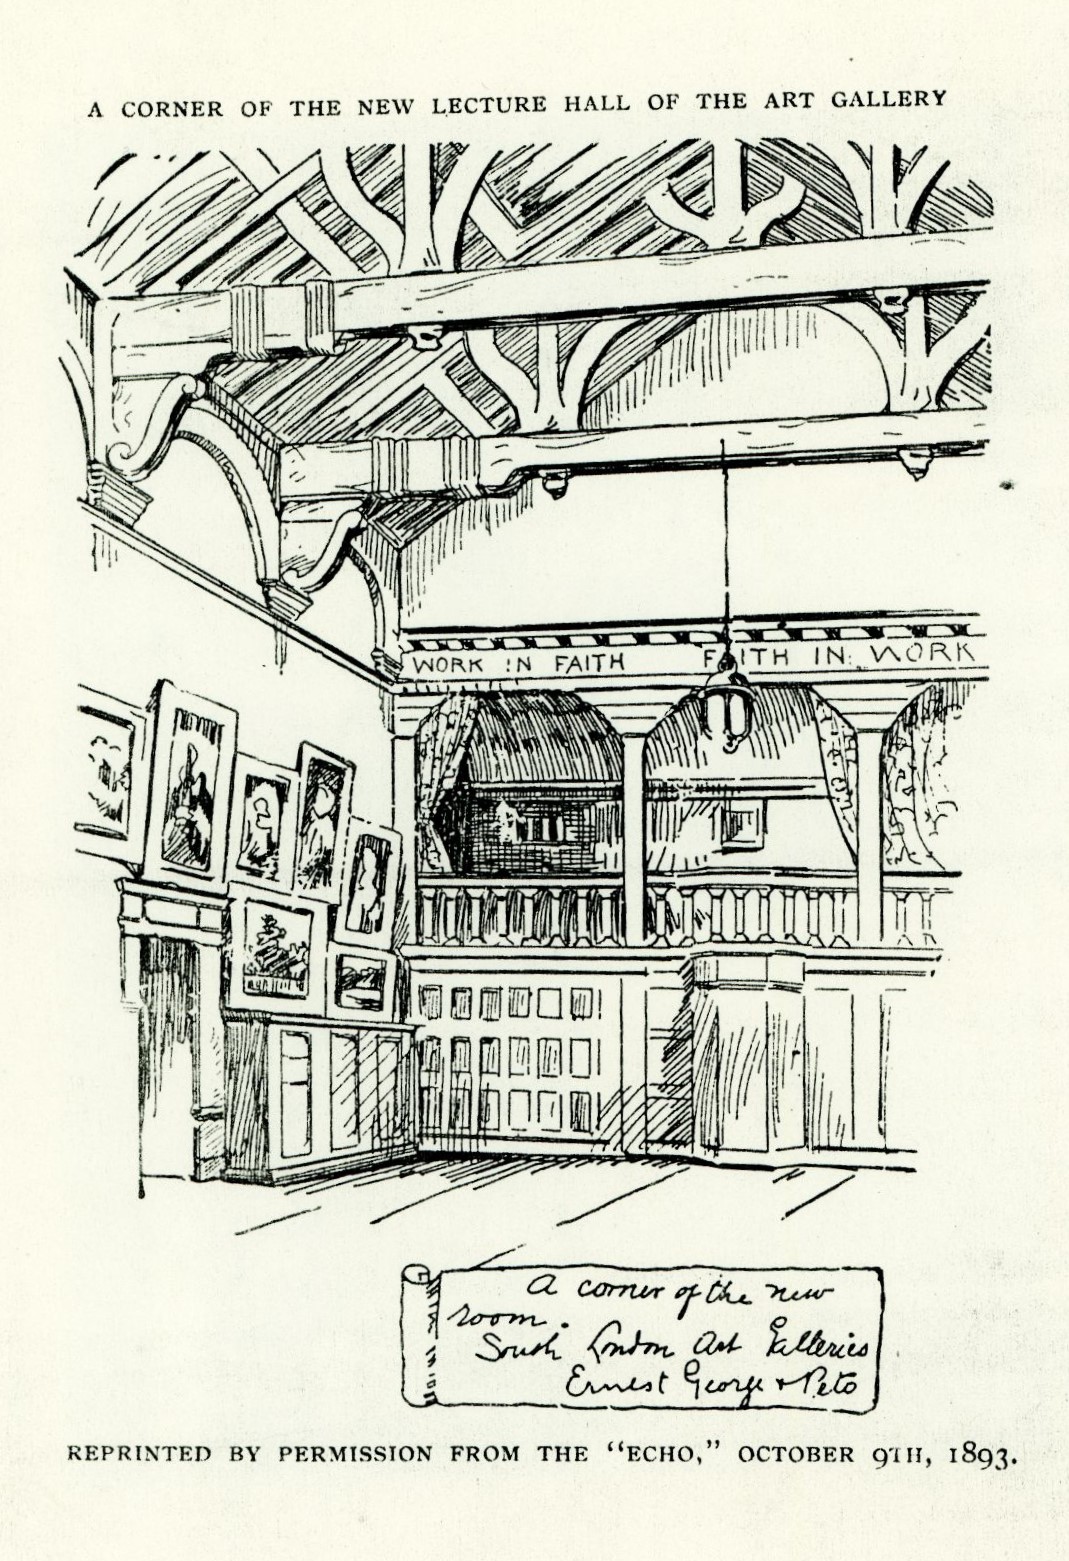 A CORNER OF THE NEW LECTURE HALL OF THE ART GALLERY
WORK IN FAITH FAITH IN WORK
A corner of the new
room.
South London Art Galleries
Ernest George & Peto
REPRINTED BY PERMISSION FROM THE "ECHO," OCTOBER 9TH, 1893.